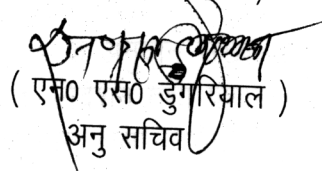 ( एन0 एस0 डुंगरियाल )
अनु सचिव